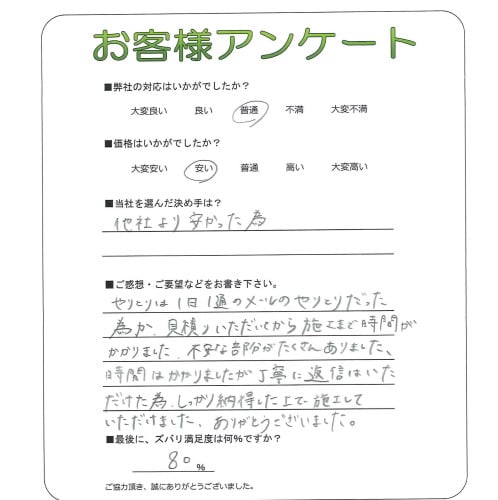 お客様アンケート
■弊社の対応はいかがでしたか？
大変良い 良い 普通 不満 大変不満
■価格はいかがでしたか？
大変安い 安い 普通 高い 大変高い
■当社を選んだ決め手は？
他社より安かった為
■ご感想・ご要望などをお書き下さい。
やりとりは1日1通のメールのやりとりだった
為か、見積りいただいてから施工まで時間が
かかりました。不安な部分がたくさんありました、
時間はかかりましたが丁寧に返信はいた
だけた為、しっかり納得した上で施工して
いただけました、ありがとうございました。
■最後に、ズバリ満足度は何%ですか？
80%
ご協力頂き、誠にありがとうございました。